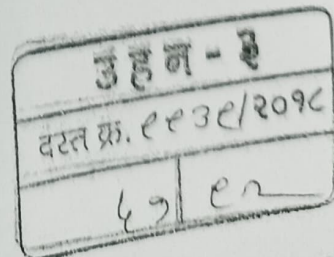 उहन - ३
दस्त क्र. ९९३९/२०१८
५१ ९२